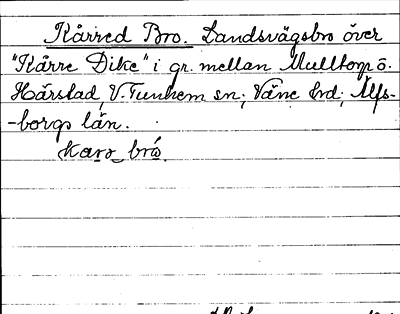 Kårred Bro. Landsvägsbro över
"Kårre Dike" i gr. mellan Mulltorp o.
Hårstad, V. Tunhem sn; Väne hrd; Älfs-
-borgs län.
Karə brö